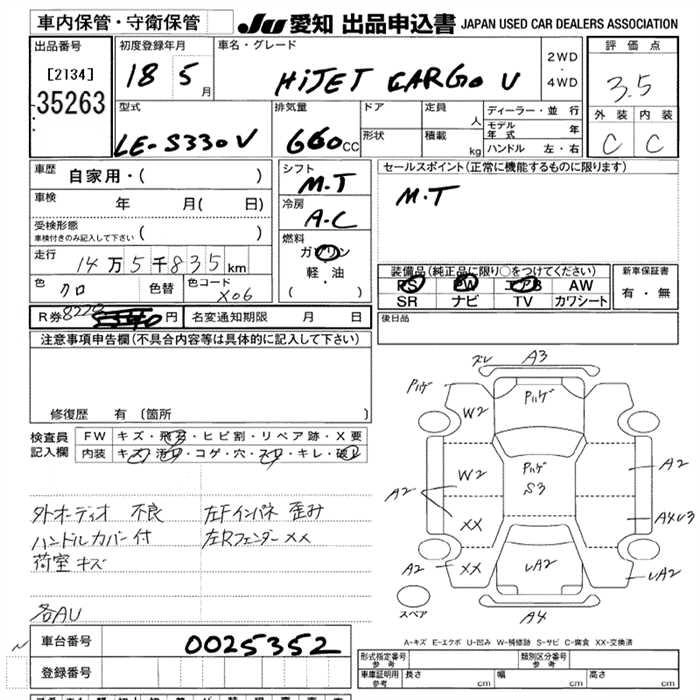 車内保管・守衛保管
JU 愛知 出品申込書 JAPAN USED CAR DEALERS ASSOCIATION
出品番号
[2134]
35263
初度登録年月
18 5月
車名・グレード
HIJET CARGO U
2WD
・
4WD
評価点
3.5
外装 内装
C C
型式
LE-S330V
排気量
660cc
ドア
形状
定員
人
積載
kg
ディーラー・並行
モデル年式 年
ハンドル 左・右
車歴
自家用・( )
車検
年 月( 日)
受検形態
車検付きのみ記入して下さい
走行
14万5千835km
色
クロ
色替
色コード
X06
R券 8220 円
名変通知期限 月 日
シフト
M.T
冷房
A.C
燃料
ガソリン
軽・油
( ・ )
セールスポイント(正常に機能するものに限ります)
M.T
装備品(純正品に限り○をつけてください)
PS PW エアB AW
SR ナビ TV カワシート
新車保証書
有・無
後日品
注意事項申告欄(不具合内容等は具体的に記入して下さい)
修復歴 有(箇所 )
検査員記入欄
FW キズ・飛石・ヒビ割・リペア跡・X要
内装 キズ・汚れ・コゲ・穴・スレ・キレ・破レ
外オーディオ 不良
ハンドルカバー付
荷室キズ
各AU
左Fインパネ 歪み
左Rフェンダーxx
スレ
A3
Pハゲ
W2
Pハゲ
W2
Pハゲ
S3
A2
A2
XX
A4U3
A2
XX
UA2
UA2
スペア
A4
A-キズ E-エクボ U-凹み W-補修跡 S-サビ C-腐食 XX-交換済
車台番号
0025352
登録番号
形式指定番号
参考
類別区分番号
参考
車庫証明用
参考
長さ cm
幅 cm
高さ cm